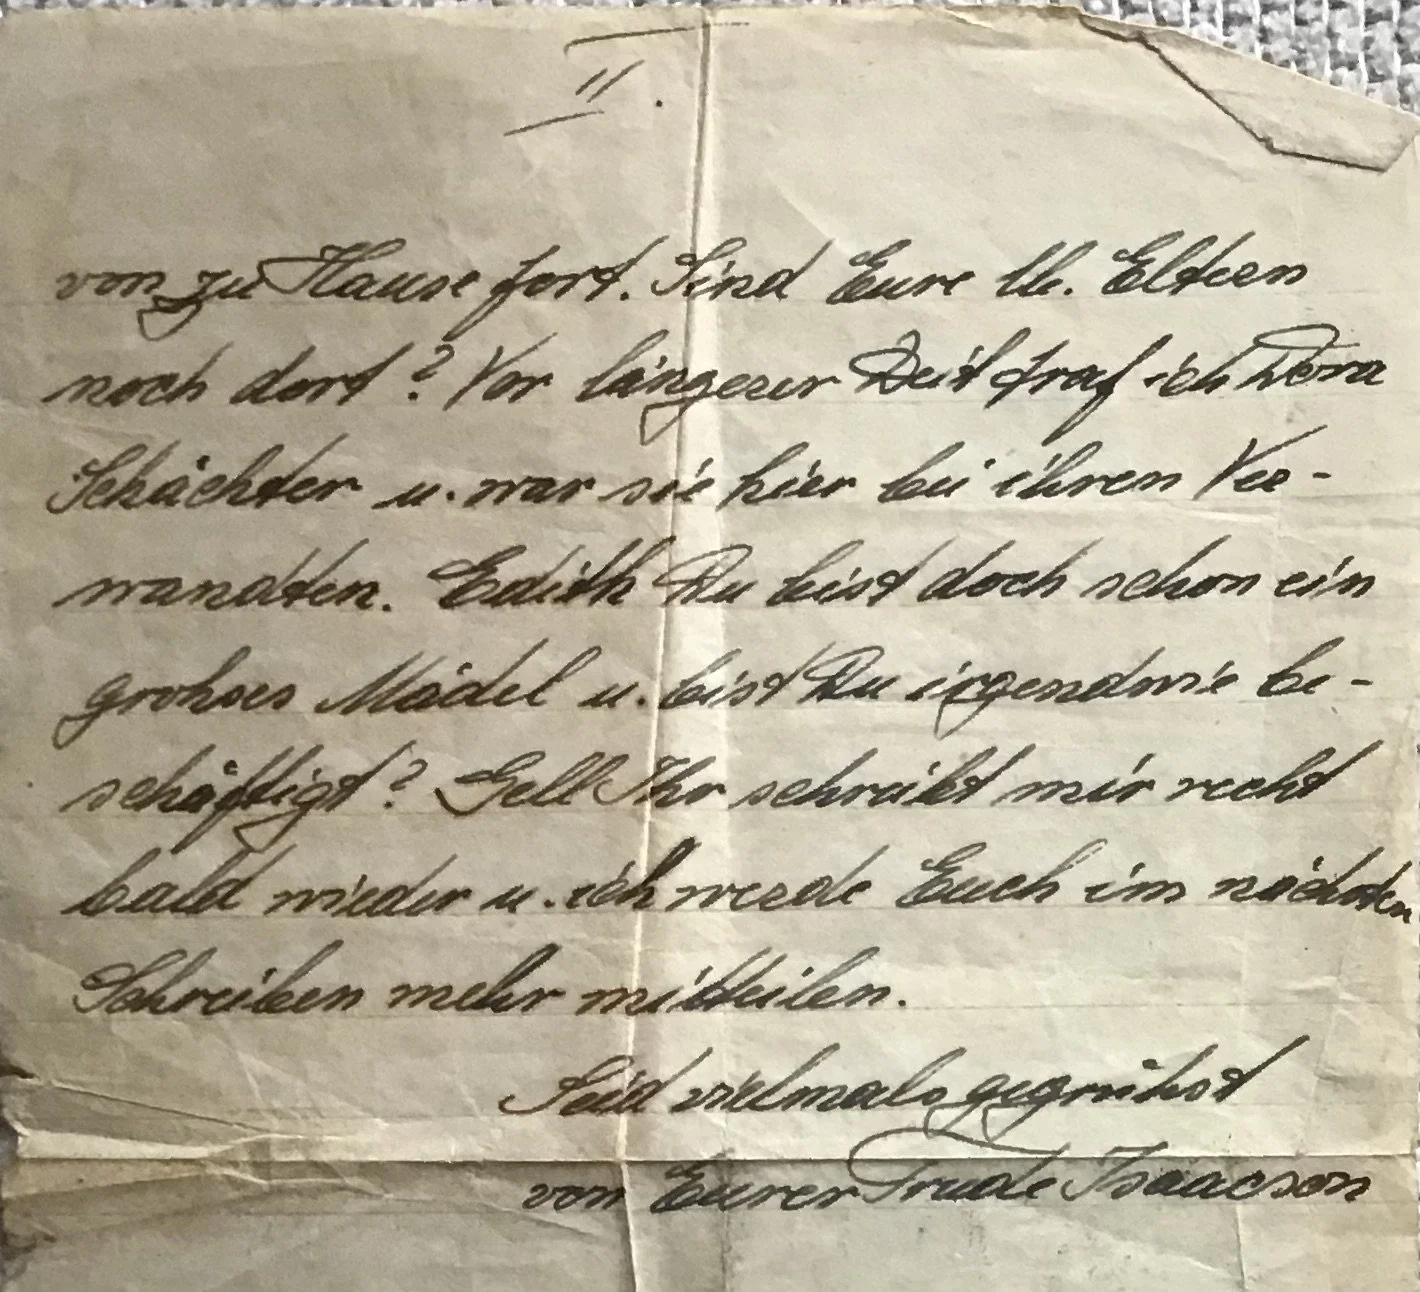 II.
von zu Hause fort. Sind Eure lb. Eltern
noch dort? Vor längerer Zeit traf ich Dora
Schächter u. war sie hier bei ihren Ver-
wandten. Edith Du bist doch schon ein
grohses Mädel u. bist Du irgendwie be-
schäftigt? Gell Ihr schreibt mir recht
bald wieder u. ich werde Euch im nächsten
Schreiben mehr mitteilen.
Seid vielmals gegrühst
von Eurer Trude Isaacson